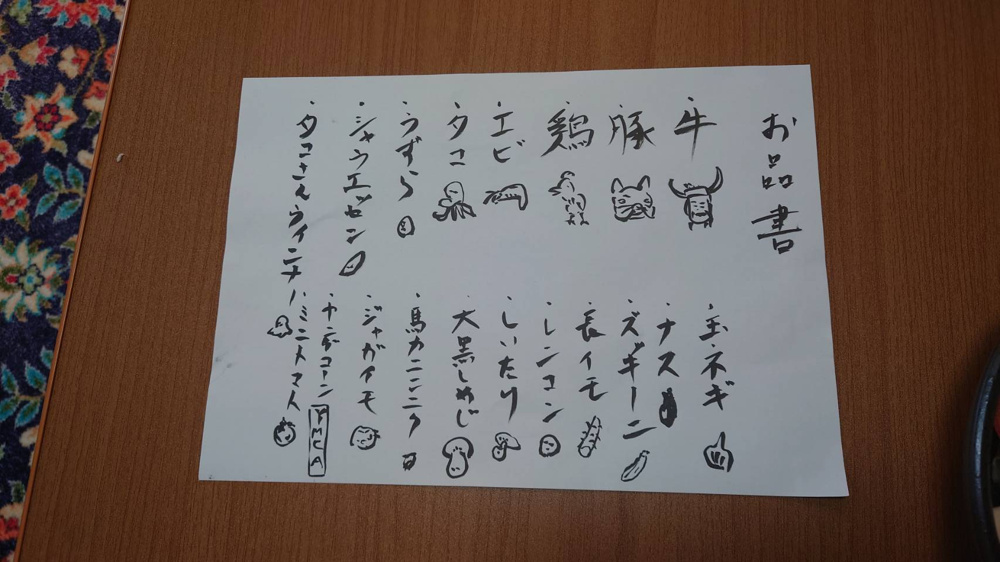 お品書
・牛
・豚
・鶏
・エビ
・タコ
・うずら
・シャウエッセン
・タコさんウインナー
・玉ネギ
・ナス
・ズッキーニ
・長イモ
・レンコン
・しいたけ
・大黒しめじ
・馬力ニンニク
・ジャガイモ
・ヤングコーン
YMCA
・ミニトマト